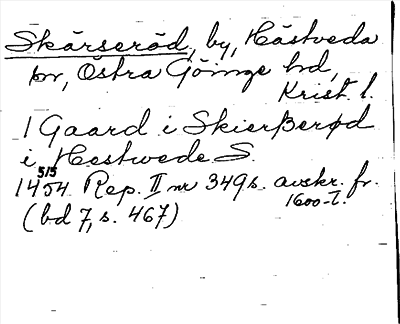 Skärseröd, by, Hästveda
sn, Östra Göinge hd,
Krist. l.
1 Gaard i Skierßerød
i Hestwede S.
5/5
1454 Rep. II nr 349 s. avskr. fr.
1600-t.
(bd 7, s. 467)